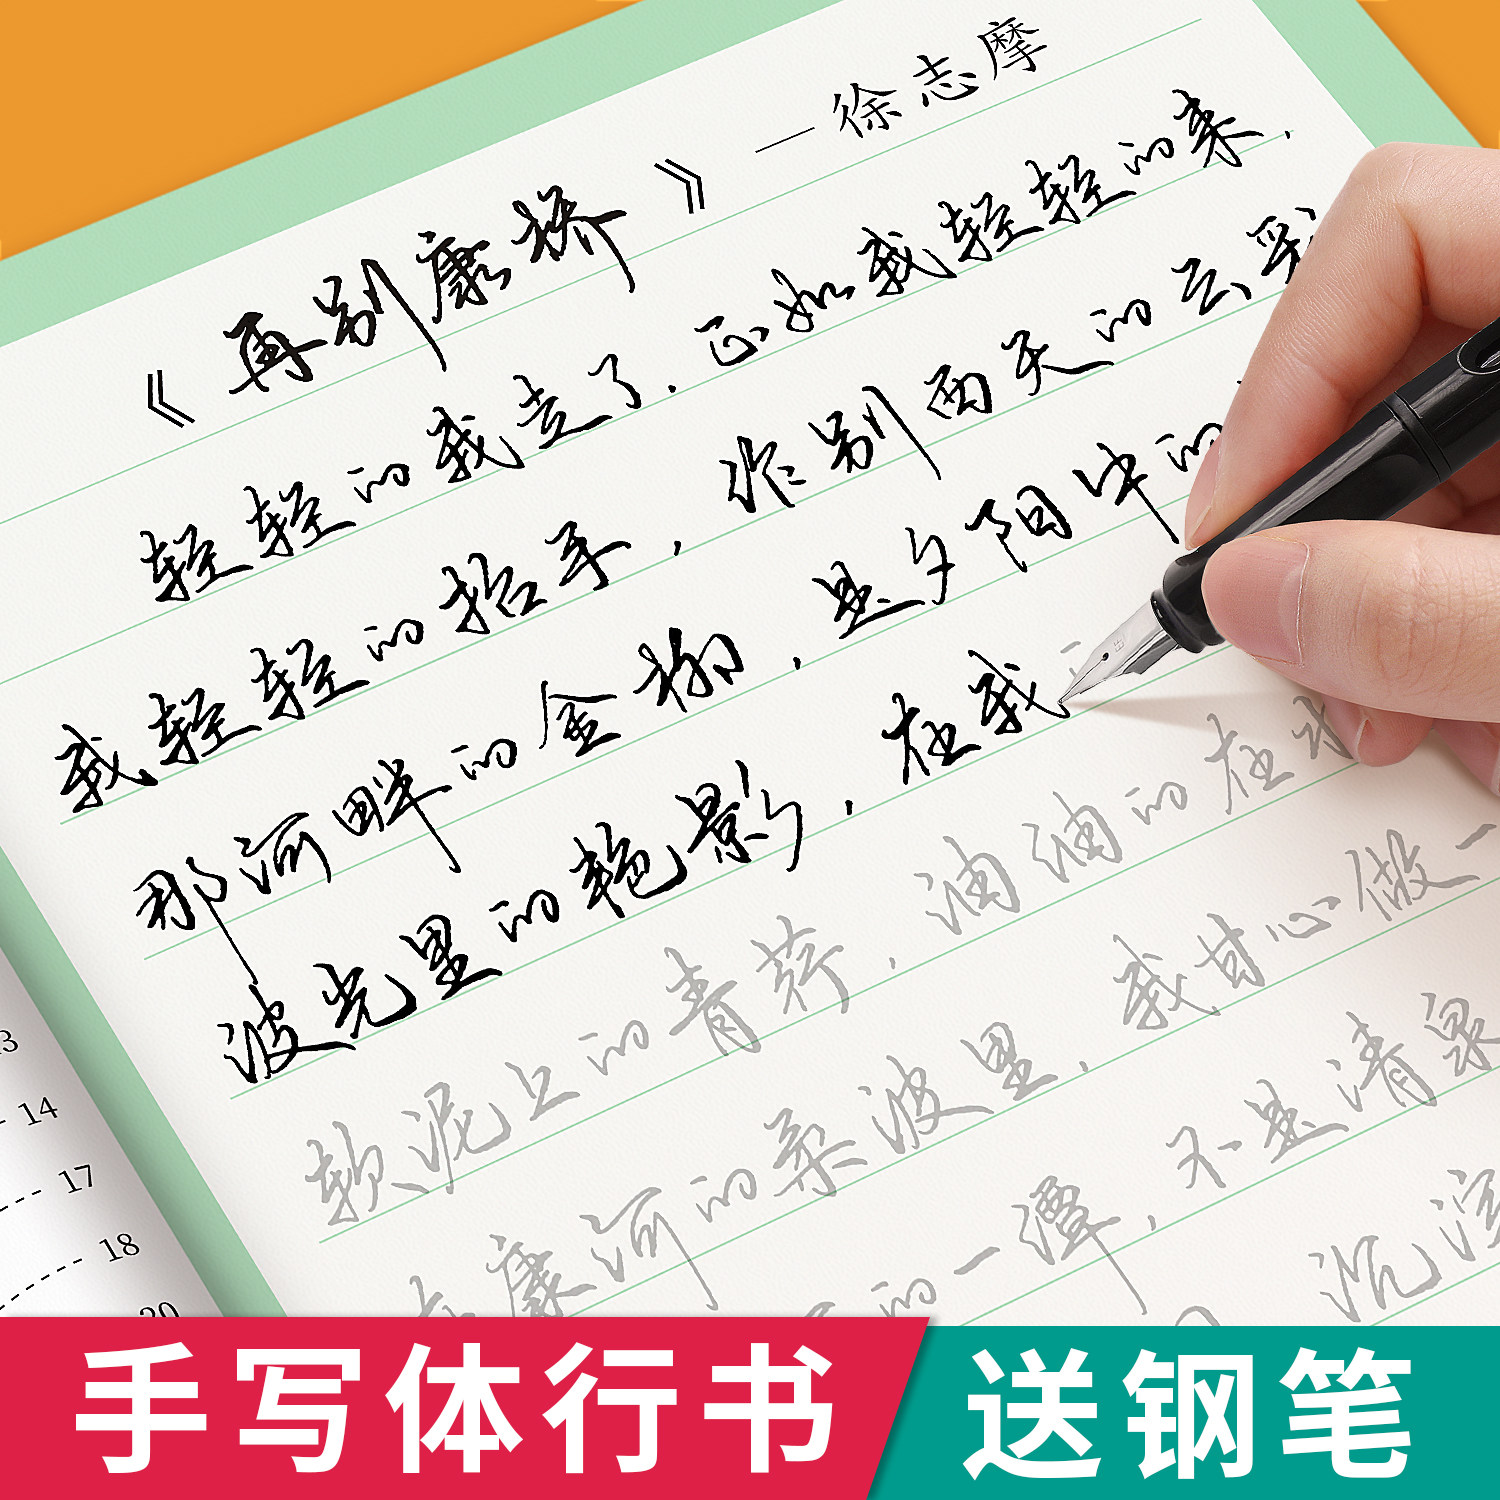 《再别康桥》 —徐志摩
轻轻的我走了，正如我轻轻的来，
我轻轻的招手，作别西天的云彩
那河畔的金柳，是夕阳中的
波光里的艳影，在我
软泥上的青荇，油油的在水
康河的柔波里，我甘心做一
的一潭，不是清泉
沉淀
14
17
18
20
手写体行书
送钢笔